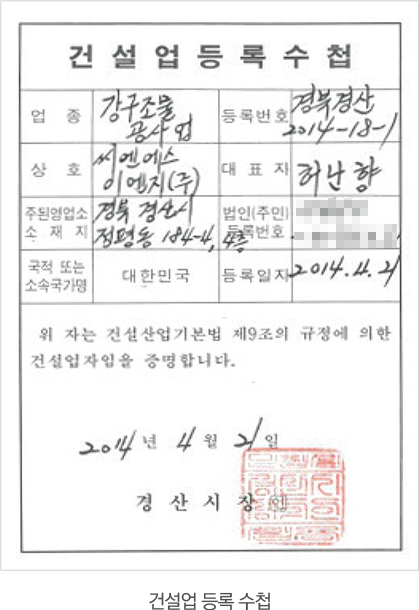 건설업등록수첩
업 종
강구조물
공사업
등록번호
경북경산
2014-18-1
상 호
씨엔에스
이엔지(주)
대 표 자
허난향
주된영업소
소 재 지
경북 경산시
정평동 184-4, 4층
법인(주민)
등록번호
국적 또는
소속국가명
대한민국
등록일자
2014.4.21
위 자는 건설산업기본법 제9조의 규정에 의한
건설업자임을 증명합니다.
2014년 4월 21일
경 산 시 장 인
건설업 등록 수첩